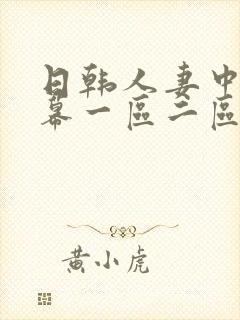 日韩人妻中
幕一區二區
黄小虎